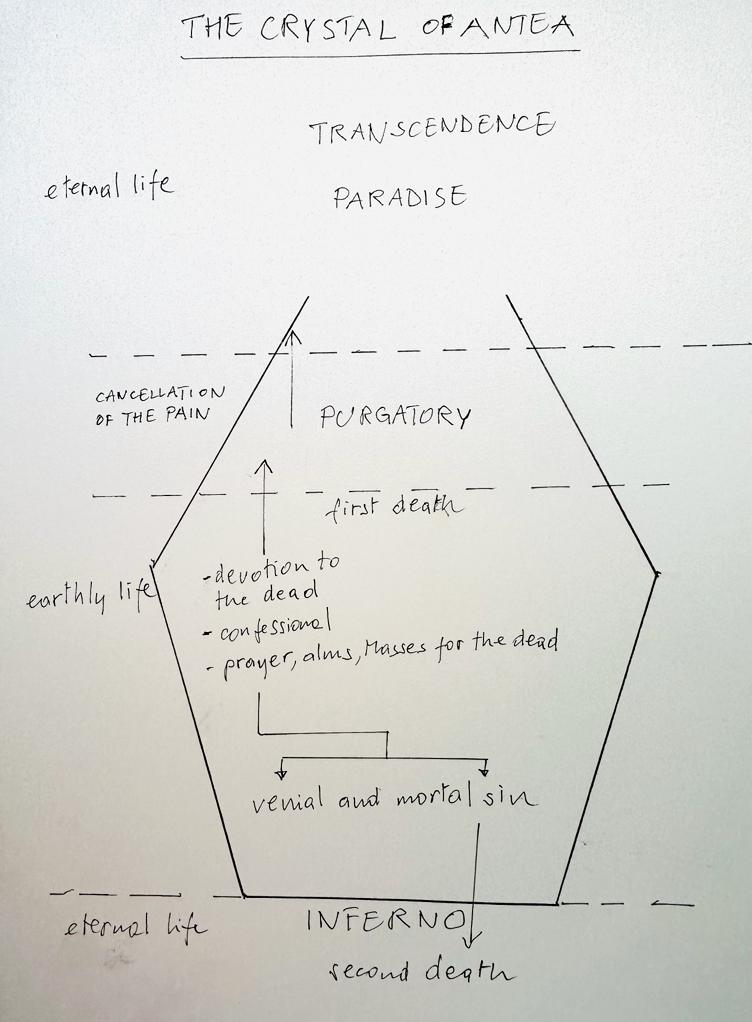 THE CRYSTAL OF ANTEA
TRANSCENDENCE
eternal life
PARADISE
CANCELLATION
OF THE PAIN
PURGATORY
first death
earthly life
-devotion to
the dead
- confessional
- prayer, alms, Masses for the dead
venial and mortal sin
eternal life
INFERNO
second death